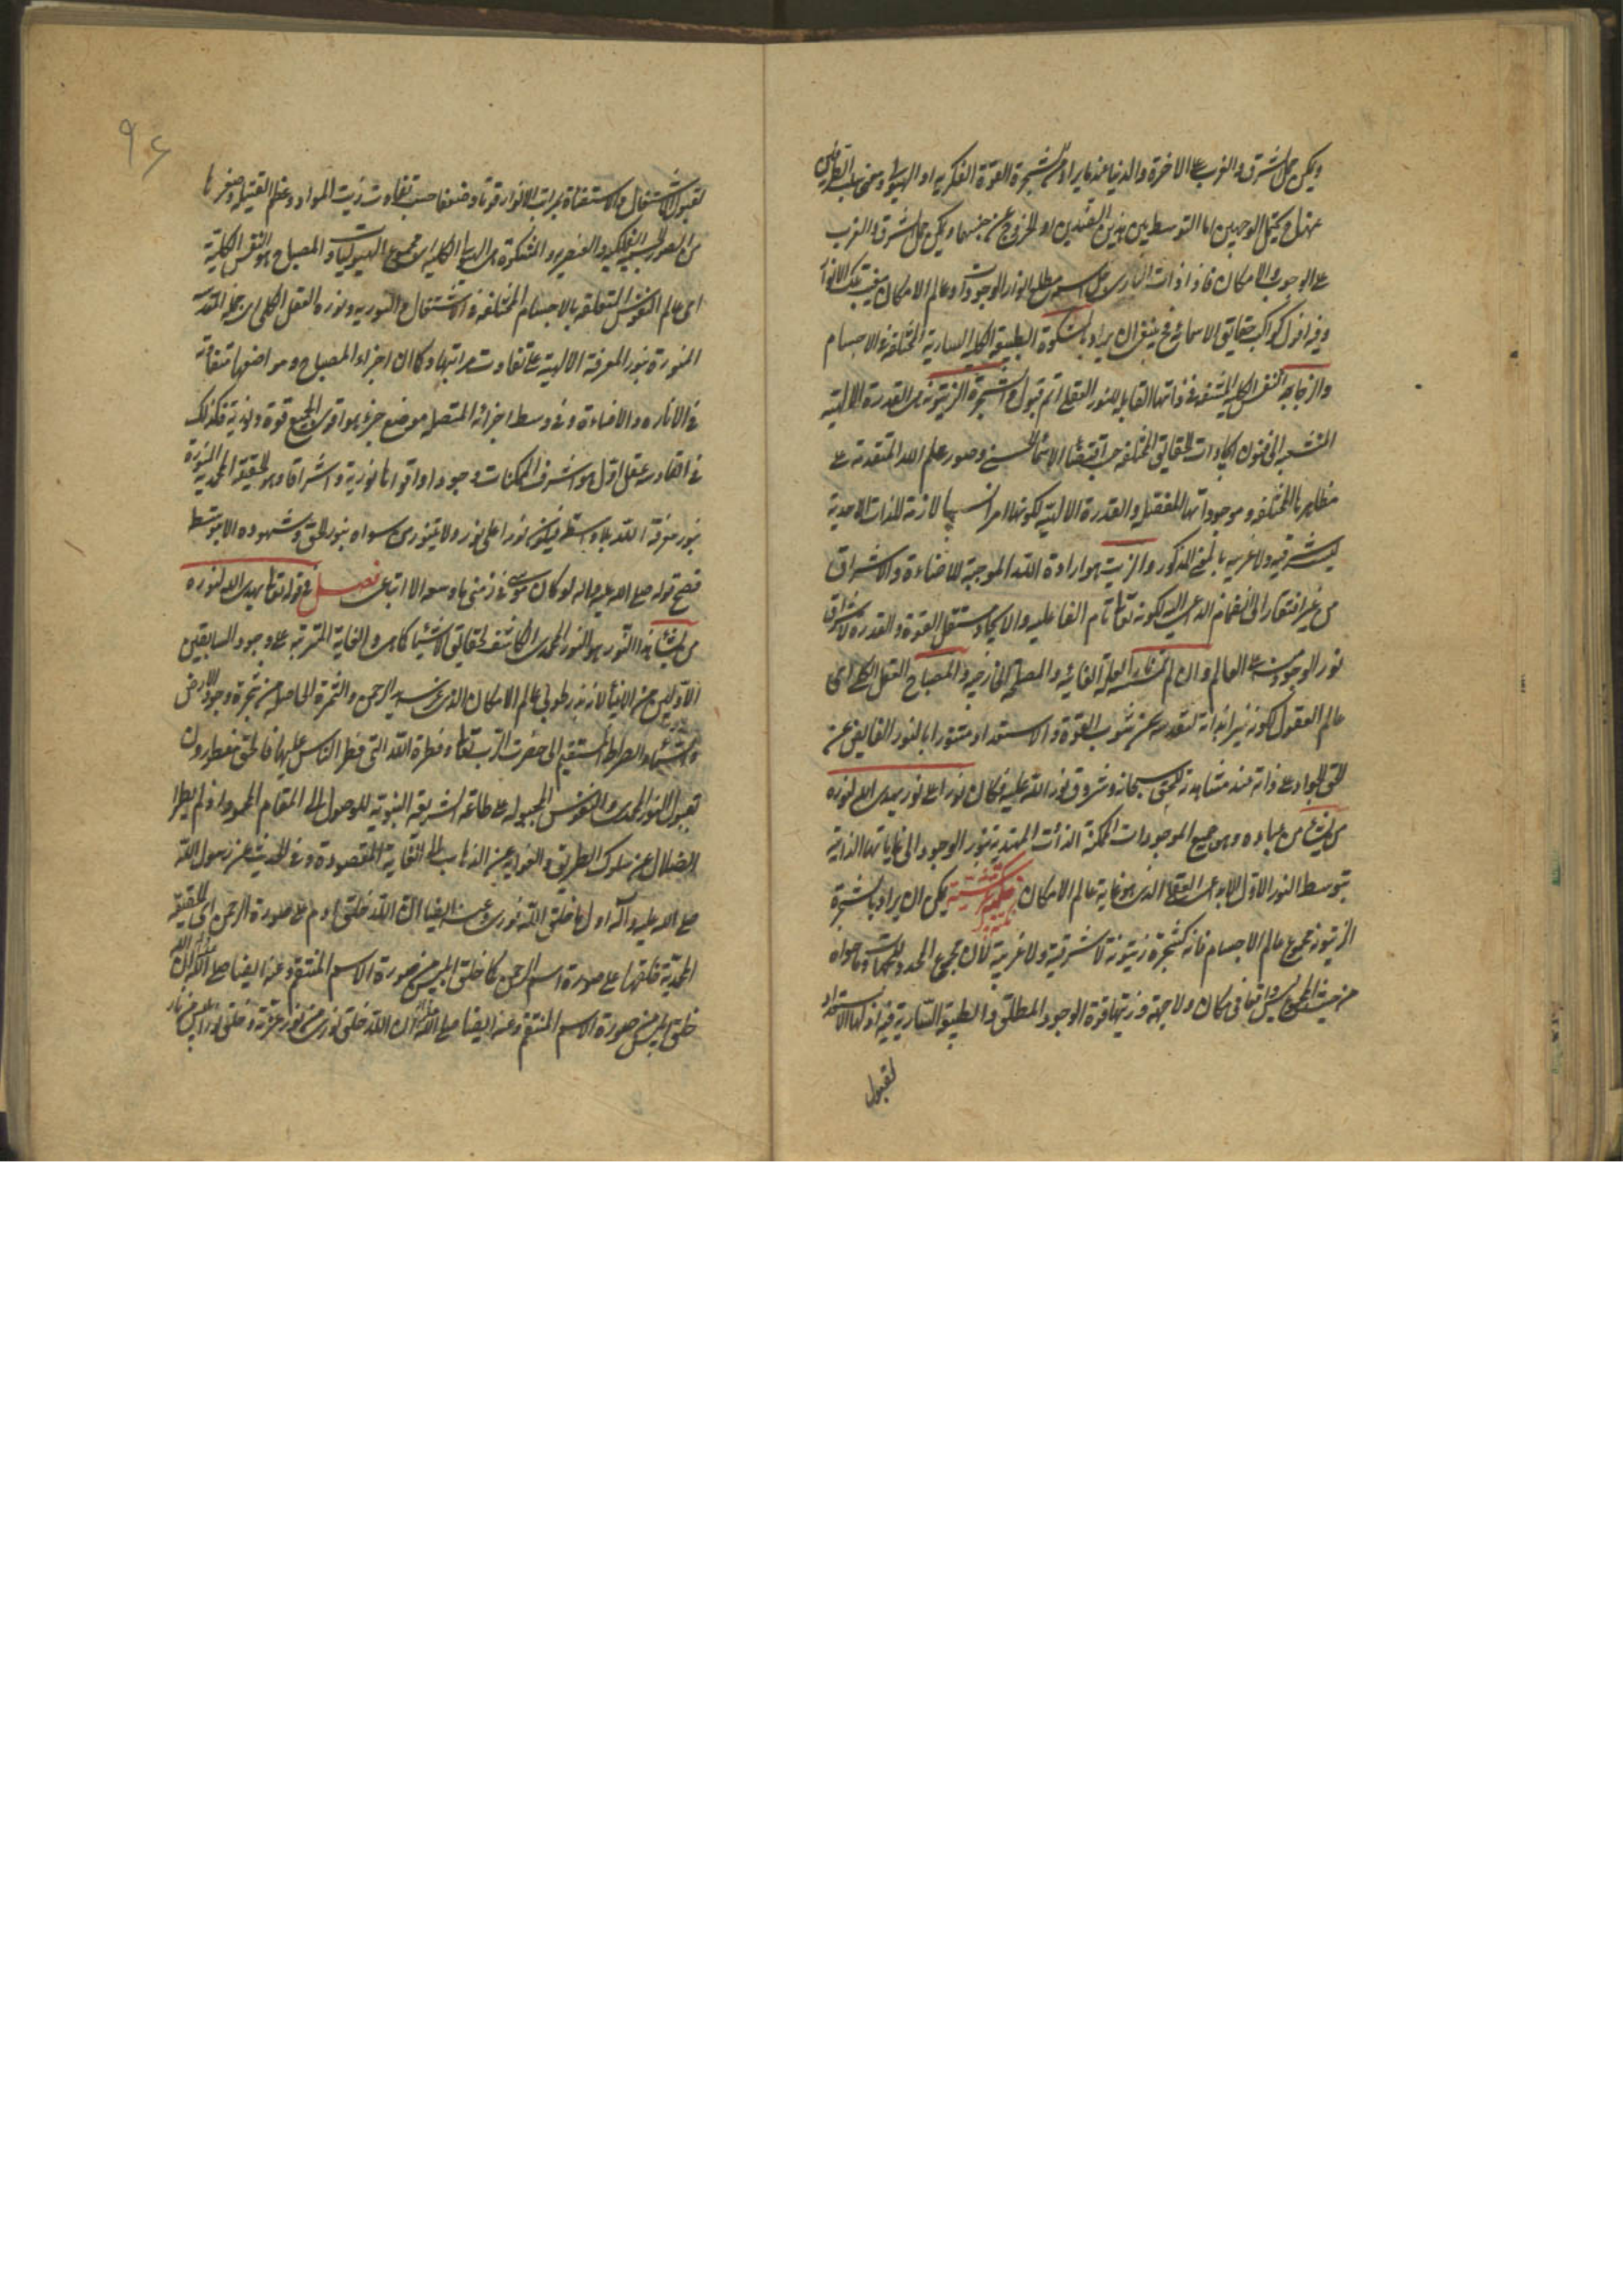 ويمكن حمل الشرق والغرب على الاخرة والدنيا عندما يراد من الشجرة القوة الفكرية او الهيولى
على الوجوب والامكان
وفيه افول كواكب حقايق الاسمائية فح ينبغى ان يراد بالمشكوة الطبيعة الكلية السارية المختلفة الاجسام
والزجاجة النفس الكلية القابلة للنور العقلى اتم قبول والشجرة الزيتونة هى القدرة الالهية
الحقايق المختلفة حسب اقتضاء الاسماء الحسنى وصور علم الله المتقدمة على
مظاهرها المختلفة وموجوداتها المفصلة والقدرة الالهية لكونها امرا لازمة للذات الاحدية
ليست شرقية ولا غربية بالمعنى المذكور والزيت هو ارادة الله الموجبة للاضاءة والاشراق
من غير افتقار الى انضمام الداعى اليه لكونه تعالى تام الفاعلية والايجاد مستقل القوة والقدرة لاشراق
نور الوجود منه على العالم وان لم تمسسه العلة الغائية والمصلحة الخارجية والمصباح العقل الكلى اى
عالم العقول لكونه نيرا بذاته لتقدسه عن شوب القوة والاستعداد متنورا بالنور الفايض عن
الحق الجواد على ذاته عند مشاهدته للحق سبحانه وشروق نور الله عليه فكان نورا على نور يهدى الله لنوره
من يشاء من عباده وهو جميع الموجودات الممكنة الذوات المهتدية بنور الوجود الى غاياتها الذاتية
بتوسط النور الاول الابداعى العقلى الذى هو غاية عالم الامكان يمكن ان يراد بالشجرة
الزيتونة مجموع عالم الاجسام فانه كشجرة زيتونة لا شرقية ولا غربية لان مجموع المحدد للجهات وما حواه
من حيث المجموع ليس واقعا فى مكان ولا جهة وزيتها قوة الوجود المطلق والطبيعة السارية فيه اذ لها الاستعداد
لقبول
٩٤
لقبول الاشتعال والاستضاءة بمراتب الانوار قوة وضعفا حسب تفاوت زيت المواد وعظم الفتيلة وصغرها
من الصور الجسمية الفلكية والعنصرية والمشكوة هى الهيولى الكلية اى مجموع الهيوليات والمصباح هو النفس الكلية
اى عالم النفوس المتعلقة بالاجسام المختلفة فى الاشتعال والنورية ونوره العقل الكلى اى جملة المقدسة
المنورة بنور المعرفة الالهية على تفاوت مراتبها وكما ان اجزاء المصباح ومواضعها متفاوتة
فى الانارة والاضاءة وفى وسط اجزائه المتصلة موضع جزء هو اقوى الجميع قوة ونورية فكذلك
فى القادسة عقل اول هو اشرف الممكنات وجودا واقواها نورية واشراقا وهو الحقيقة المحمدية المنورة
بنور معرفة الله بلا واسطة فيكون نورا على نور ولا يتنور من سواه بنور الحق وشهوده الا بتوسطه
فصح قوله صلى الله عليه واله لو كان موسى فى زمنى ما وسعه الا اتباعى فصل فى قوله تعالى يهدى الله لنوره
من يشاء هذا النور هو النور المحمدى الكاشف لحقايق الاشياء كما هى والغاية المترتبة على وجود السابقين
الاولين من الانبياء لانه بذر طوبى عالم الامكان الذى غرسه يد الرحمن والثمرة الحاصلة من شجرة وجود الارض
والسماء والصراط المستقيم الى حضرة الرب تعالى وفطرة الله التى فطر الناس عليها فالخلق مفطورون
بقبول النور المحمدى والنفوس المجبولة على طاعة الشريعة النبوية للوصول الى المقام المحمود اذ لم يطرأ
الضلال عن سلوك الطريق والغواية عن الذهاب الى الغاية المقصودة وفى الحديث عن رسول الله
صلى الله عليه وآله اول ما خلق الله نورى وعنه ايضا ان الله خلق ادم على صورة الرحمن اى الحقيقة
المحمدية فخلقها على صورة اسم الرحمن كما خلق ابليس من صورة الاسم المنتقم وعنه ايضا صلى الله عليه وآله ان الله
خلق ابليس من صورة الاسم المنتقم وعنه ايضا صلى الله عليه وآله ان الله خلق نورى من نور عزته وخلق نور ابليس من نار